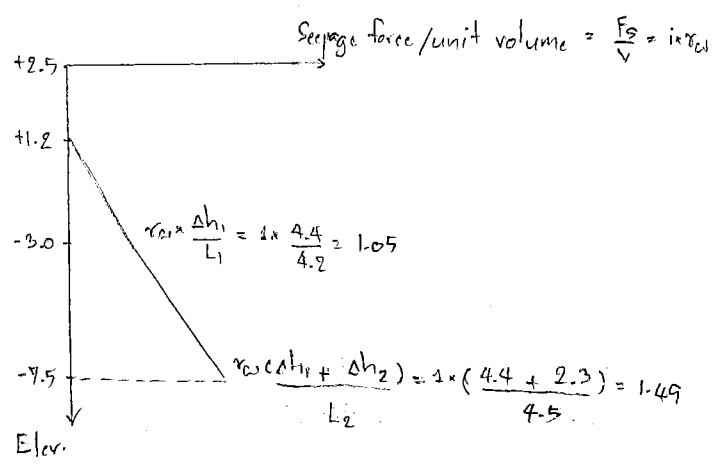 Seepage force/unit volume = Fs/V = i*rω
+2.5
+1.2
-3.0
rω * Δh1/L1 = 1* 4.4/4.2 = 1.05
-7.5
rω(Δh1 + Δh2)/L2 = 1*(4.4 + 2.3)/4.5 = 1.49
Elev.